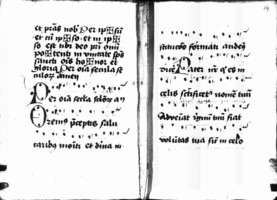 et p̄cias nob̄ Per ip✠sū
et cū ip✠so et in ip✠
so est tibi deo pr̄i om̄i
po✠tenti in unitate sp̄s
sancti oīs ho✠nor et
gloria Per oīa secula se
culoꝝ amen
Per oīa secła sclōꝝ am
Oremus preceptis salu
taribꝫ moīti et diuina in
19
stitucōe formati audem9
dice Pater nr̄ q̄ es in
celis scīficetᷣ nomē tuū
Adveniat regnū tuū fiat
volūtas tua sicut in celo